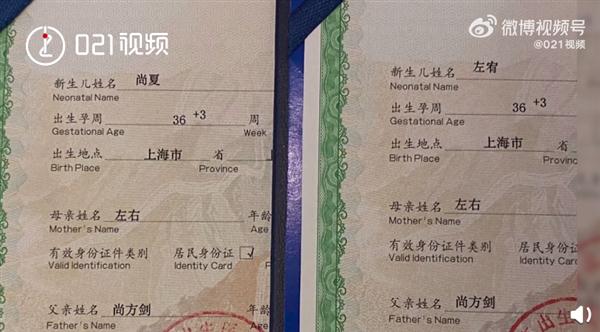 021视频
新生儿姓名 尚夏
Neonatal Name
出生孕周 36 +3 周
Gestational Age Week
出生地点 上海市 省
Birth Place Province
母亲姓名 左右 年龄
Mother's Name Age
有效身份证件类别 居民身份证
Valid Identification Identity Card
父亲姓名 尚方剑 年龄
Father's Name Age
微博视频号
@021视频
新生儿姓名 左宥
Neonatal Name
出生孕周 36 +3
Gestational Age
出生地点 上海市
Birth Place Province
母亲姓名 左右
Mother's Name
有效身份证件类别 居民身份证
Valid Identification Identity Card
父亲姓名 尚方剑
Father's Name
出生